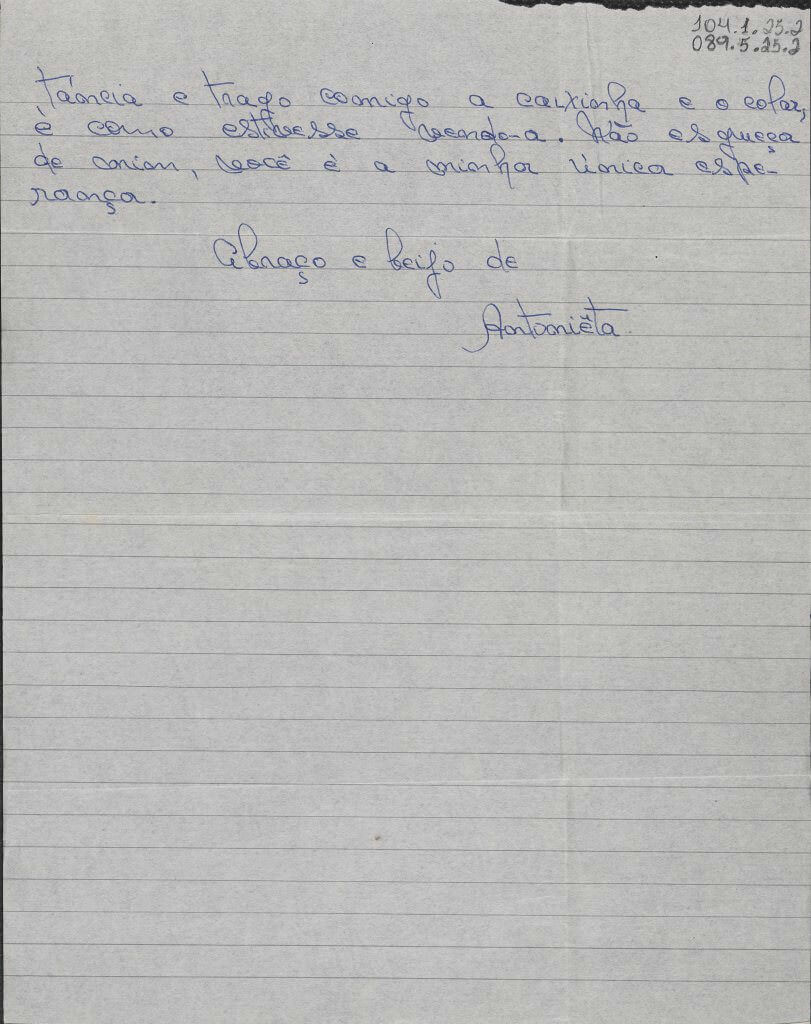 104.1.25.2
089.5.25.2
tância e trago comigo a caixinha e o colar,
è como estivesse vendo-a. Não esqueça
de mim, você è a minha única espe-
rança.
Abraço e beijo de
Antoniêta